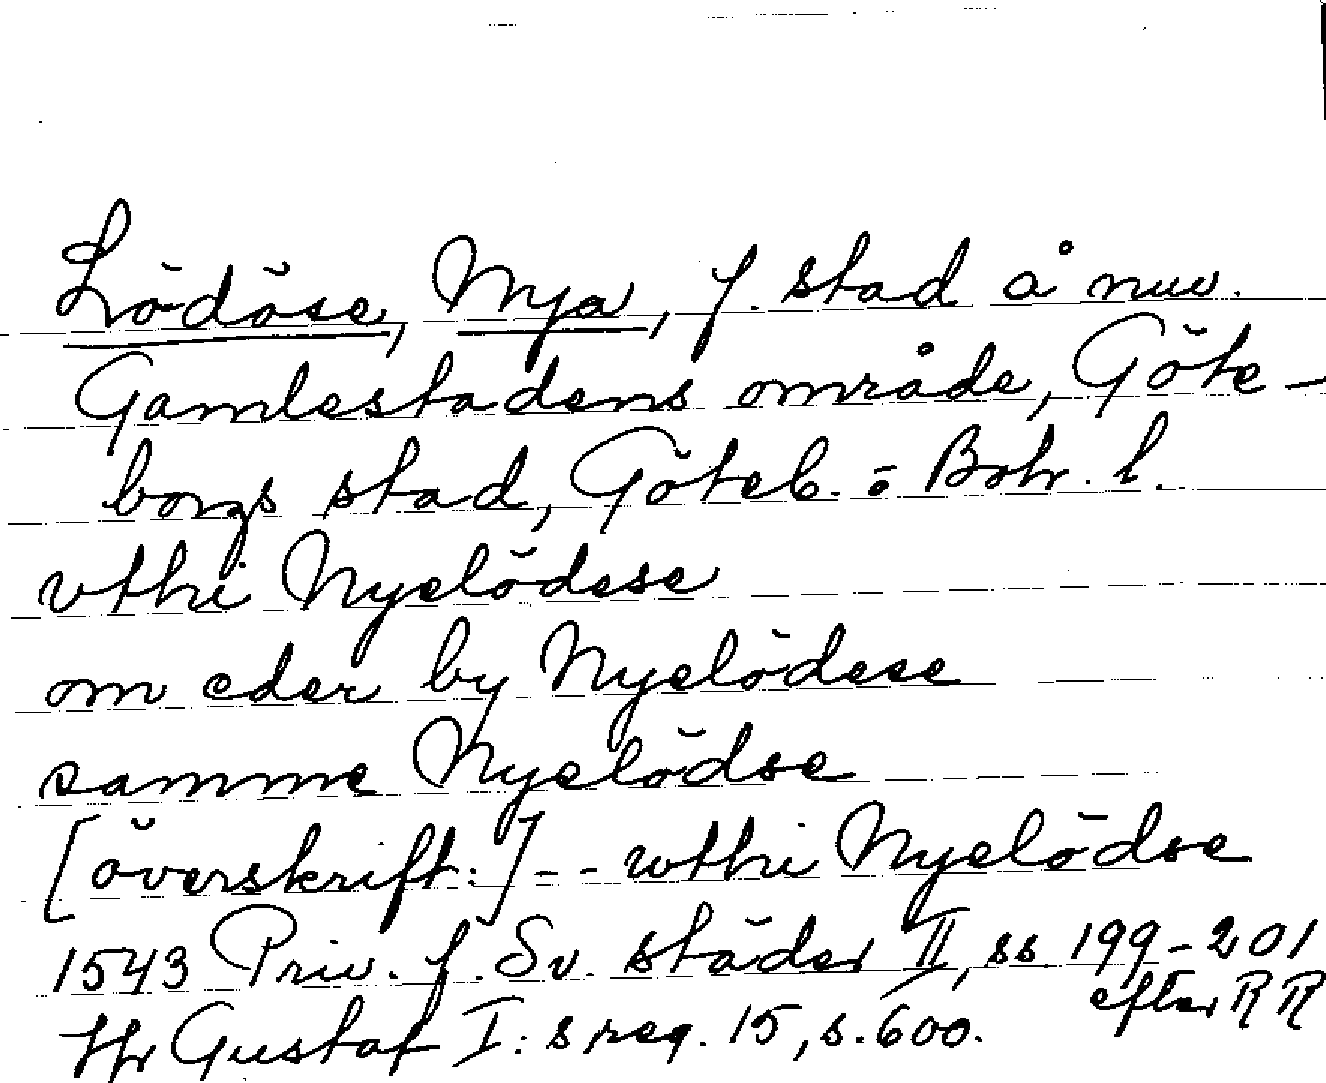 Lödöse, Nya, f. stad å nuv.
Gamlestadens område, Göte-
borgs stad, Göteb. o. Boh. l.
vthi Nyelödese
om eder by Nyelödese
samme Nyelödse
[överskrift:] - - wthi Nyelödse
1543 Priv. f. Sv. städer II, ss 199-201
efter RR
Jfr Gustaf I:s reg. 15, s. 600.